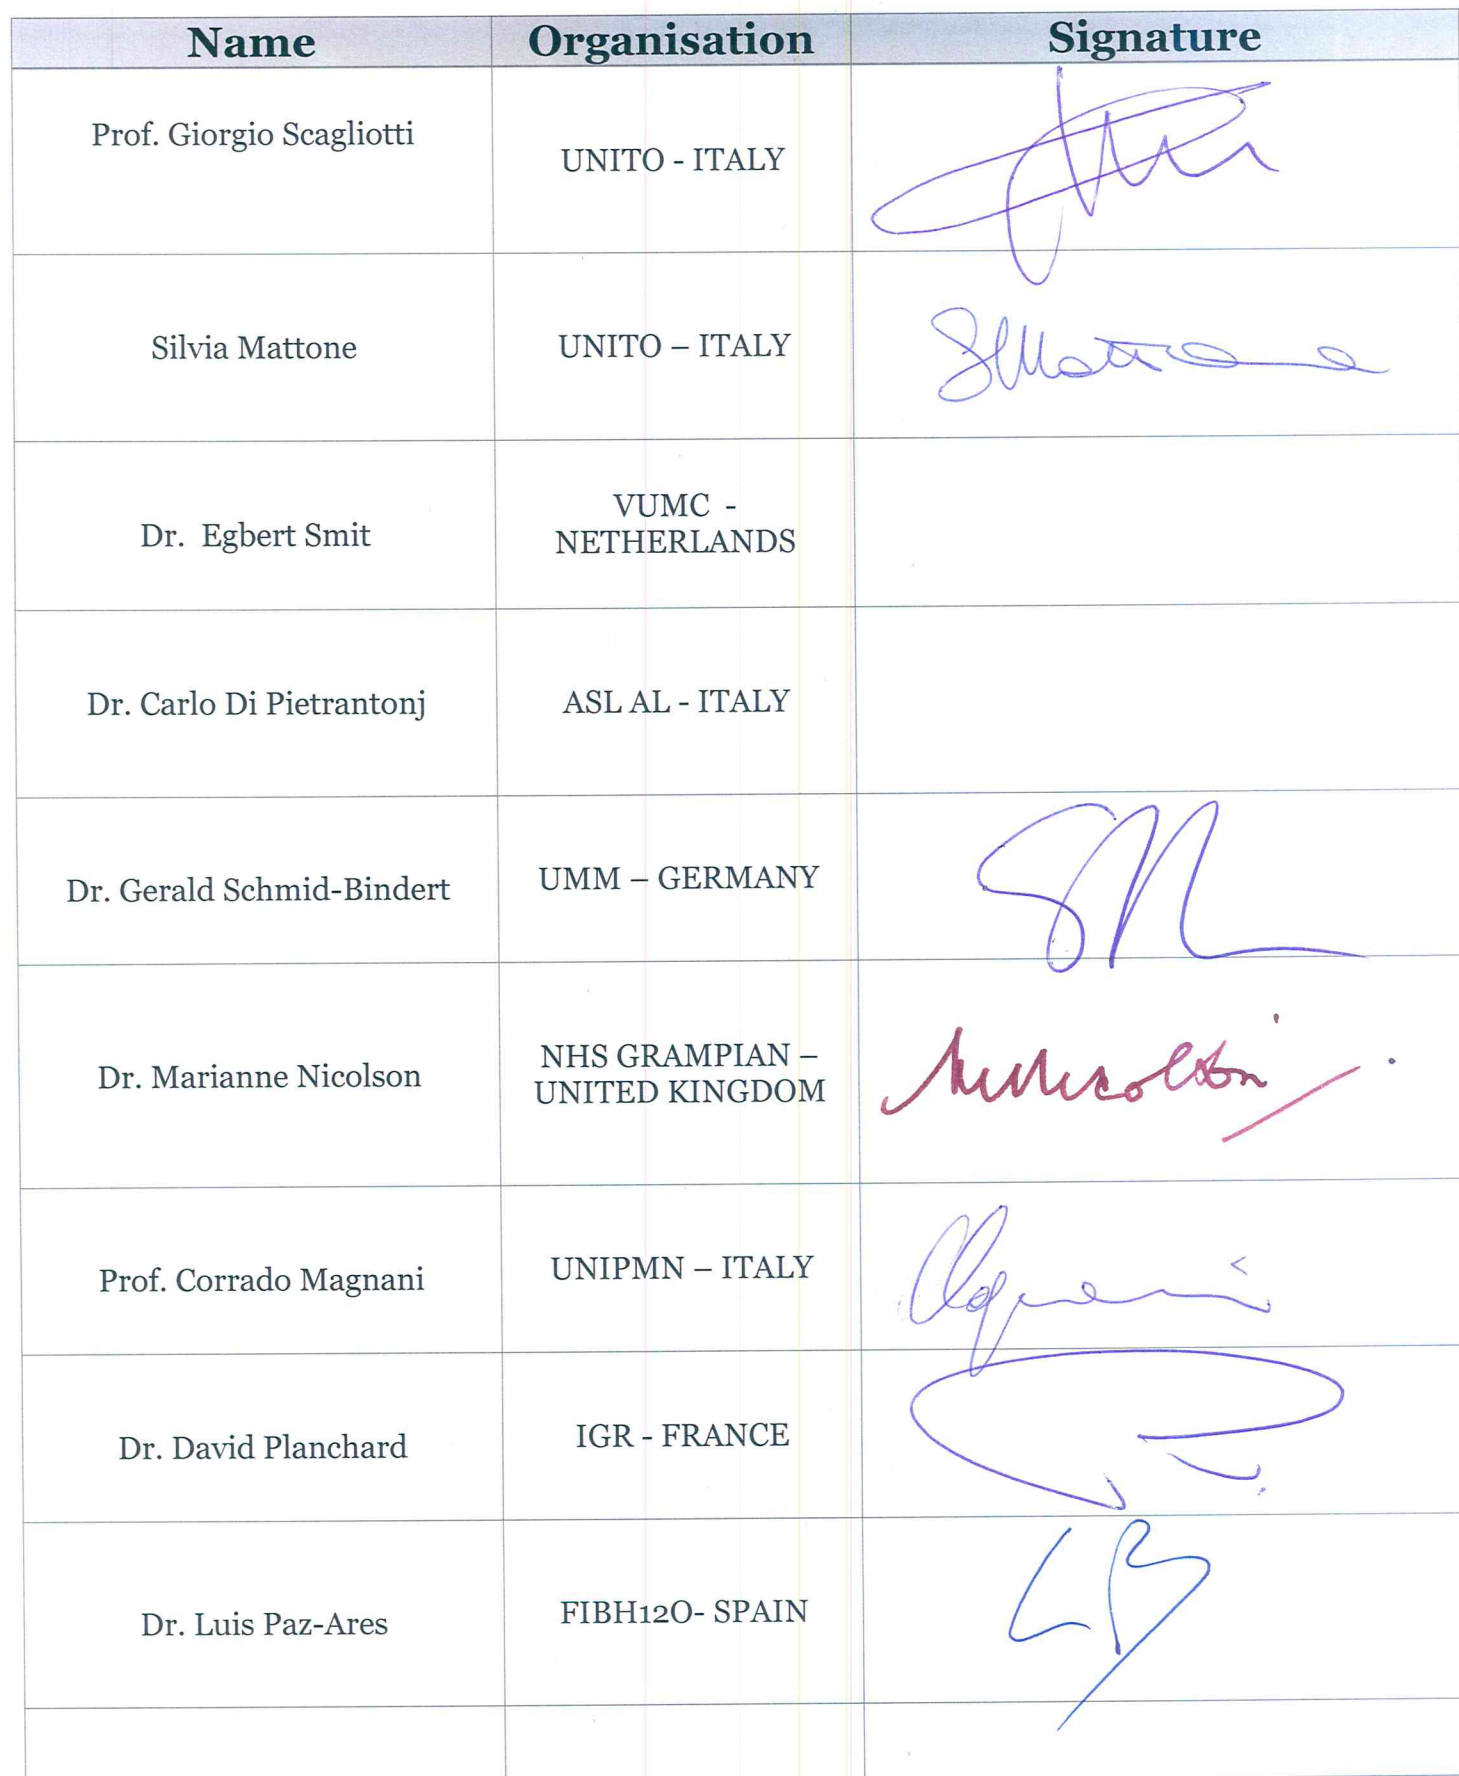 Name Organisation Signature
Prof. Giorgio Scagliotti
UNITO - ITALY
Silvia Mattone UNITO – ITALY SMattone
Dr. Egbert Smit
VUMC -
NETHERLANDS
Dr. Carlo Di Pietrantonj ASL AL - ITALY
Dr. Gerald Schmid-Bindert UMM – GERMANY
Dr. Marianne Nicolson
NHS GRAMPIAN –
UNITED KINGDOM
MNicolson
Prof. Corrado Magnani UNIPMN – ITALY
Dr. David Planchard IGR - FRANCE
Dr. Luis Paz-Ares FIBH12O- SPAIN